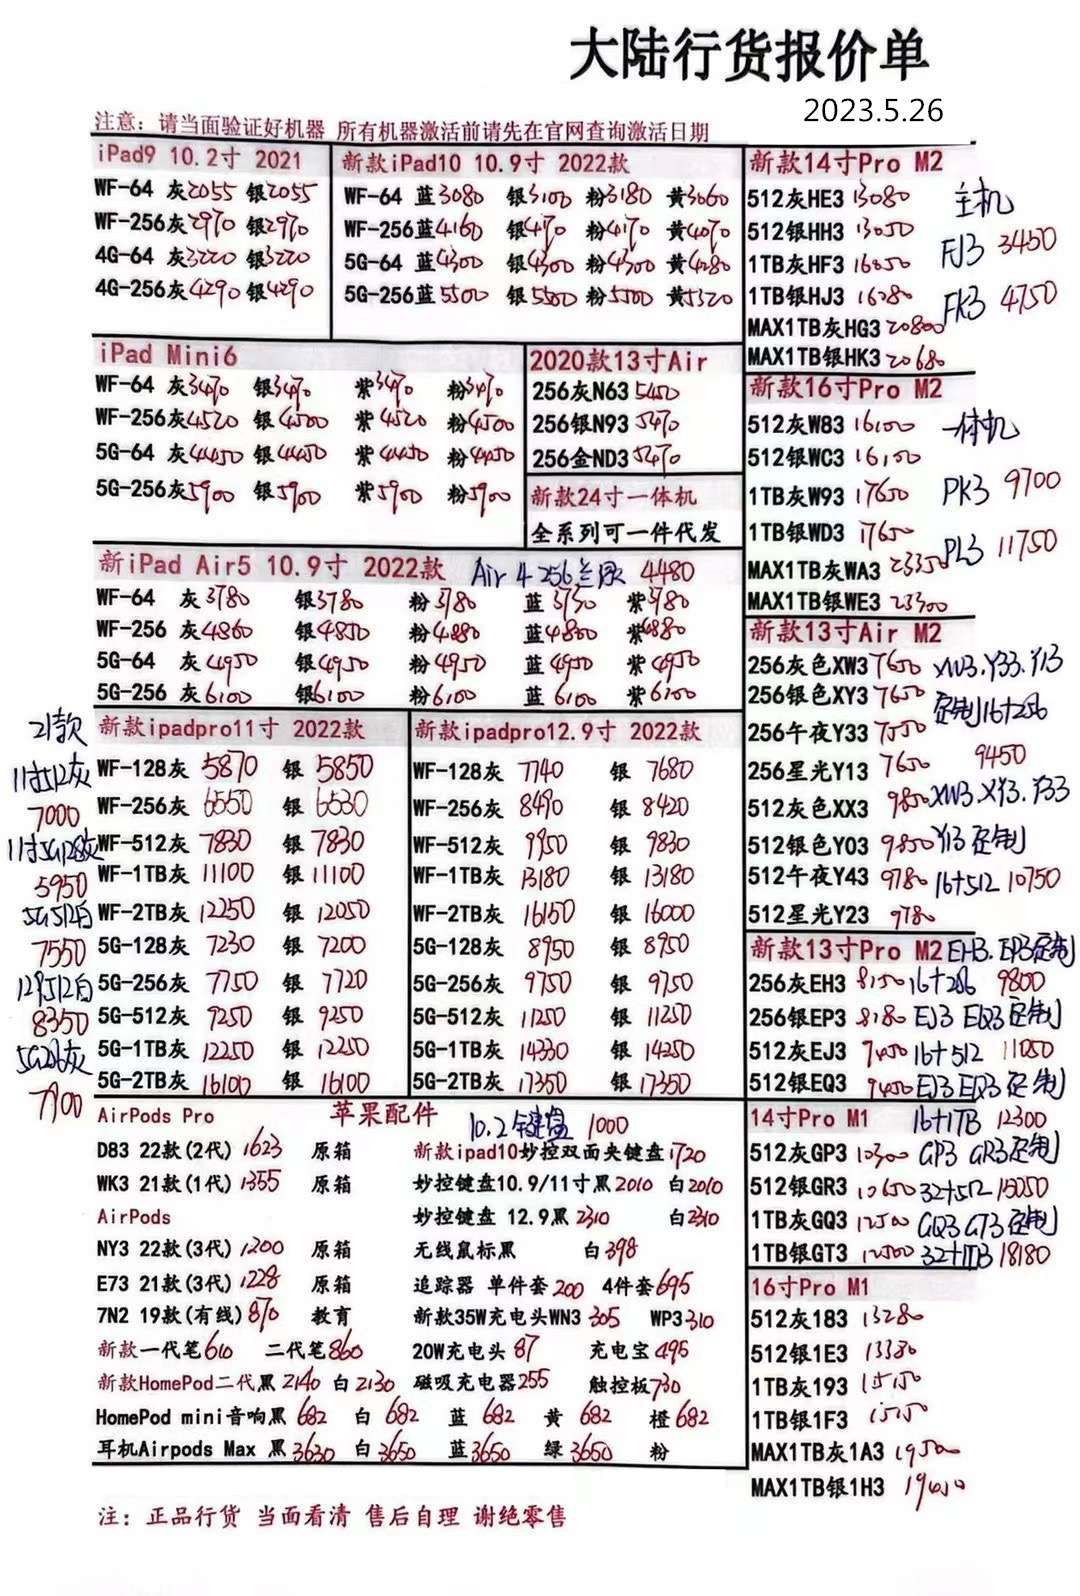 大陆行货报价单
2023.5.26
注意：请当面验证好机器 所有机器激活前请先在官网查询激活日期
iPad9 10.2寸 2021
WF-64 灰2055 银2055
WF-256灰2970 银2970
4G-64 灰3220 银3220
4G-256灰4290 银4290
新款iPad10 10.9寸 2022款
WF-64 蓝3080 银3100 粉3180 黄3060
WF-256蓝4160 银4170 粉4170 黄4070
5G-64 蓝4300 银4300 粉4300 黄4280
5G-256蓝5500 银5500 粉5500 黄5320
iPad Mini6
WF-64 灰3470 银3470 紫3470 粉3470
WF-256灰4520 银4500 紫4520 粉4500
5G-64 灰4450 银4450 紫4450 粉4450
5G-256灰5900 银5900 紫5900 粉5900
2020款13寸Air
256灰N63 5450
256银N93 5470
256金ND3 5470
新款24寸一体机
全系列可一件代发
新iPad Air5 10.9寸 2022款 Air 4 256 4480
WF-64 灰3780 银3780 粉3780 蓝3730 紫3780
WF-256 灰4860 银4850 粉4880 蓝4800 紫4880
5G-64 灰4950 银4950 粉4950 蓝4950 紫4950
5G-256 灰6100 银6100 粉6100 蓝6100 紫6100
21款
11寸512灰
7000
11寸5G128灰
5950
5G512白
7550
129512白
8350
5G256灰
7900
新款ipadpro11寸 2022款
WF-128灰 5870 银 5850
WF-256灰 6550 银 6530
WF-512灰 7830 银 7830
WF-1TB灰 11100 银 11100
WF-2TB灰 12250 银 12050
5G-128灰 7230 银 7200
5G-256灰 7750 银 7720
5G-512灰 9250 银 9250
5G-1TB灰 12250 银 12250
5G-2TB灰 16100 银 16100
新款ipadpro12.9寸 2022款
WF-128灰 7740 银 7680
WF-256灰 8490 银 8420
WF-512灰 9950 银 9830
WF-1TB灰 13180 银 13180
WF-2TB灰 16150 银 16000
5G-128灰 8950 银 8950
5G-256灰 9750 银 9750
5G-512灰 11250 银 11250
5G-1TB灰 14330 银 14250
5G-2TB灰 17350 银 17350
苹果配件
AirPods Pro
D83 22款(2代) 1623 原箱
WK3 21款(1代) 1355 原箱
AirPods
NY3 22款(3代) 1200 原箱
E73 21款(3代) 1228 原箱
7N2 19款(有线) 870 教育
新款一代笔610 二代笔860
新款HomePod二代黑 2140 白 2130
HomePod mini音响黑 682 白 682 蓝 682 黄 682 橙 682
耳机Airpods Max 黑 3630 白 3650 蓝 3650 绿 3650 粉
10.2 键盘 1000
新款ipad10妙控双面夹键盘 1720
妙控键盘10.9/11寸黑 2010 白 2010
妙控键盘 12.9黑 2310 白 2310
无线鼠标黑 白 398
追踪器 单件套 200 4件套 695
新款35W充电头WN3 305 WP3 310
20W充电头 87 充电宝 495
磁吸充电器255 触控板730
新款14寸Pro M2
512灰HE3 13080
512银HH3 13050
1TB灰HF3 16050
1TB银HJ3 16280
MAX1TB灰HG3 20800
MAX1TB银HK3 20680
主机
FJ3 3450
FK3 4750
新款16寸Pro M2
512灰W83 16100
512银WC3 16100
1TB灰W93 17650
1TB银WD3 17650
MAX1TB灰WA3 23350
MAX1TB银WE3 23300
一体机
PK3 9700
PL3 11750
新款13寸Air M2
256灰色XW3 7650
256银色XY3 7650
256午夜Y33 7550
256星光Y13 7650
512灰色XX3 9850
512银色Y03 9850
512午夜Y43 9780
512星光Y23 9780
XW3.Y33.Y13
定制16+256
9450
XW3.XY3.Y33
Y13 定制
16+512 10750
新款13寸Pro M2 EH3.EP3定制
256灰EH3 8150 16+256 9800
256银EP3 8180 EJ3 EQ3定制
512灰EJ3 9450 16+512 11050
512银EQ3 9450 EJ3 EQ3 定制
14寸Pro M1 16+1TB 12300
512灰GP3 10300 GP3 GR3定制
512银GR3 10650 32+512 15050
1TB灰GQ3 12500 GQ3 GT3定制
1TB银GT3 12500 32+1TB 18180
16寸Pro M1
512灰183 13280
512银1E3 13380
1TB灰193 15150
1TB银1F3 15150
MAX1TB灰1A3 19500
MAX1TB银1H3
注：正品行货 当面看清 售后自理 谢绝零售